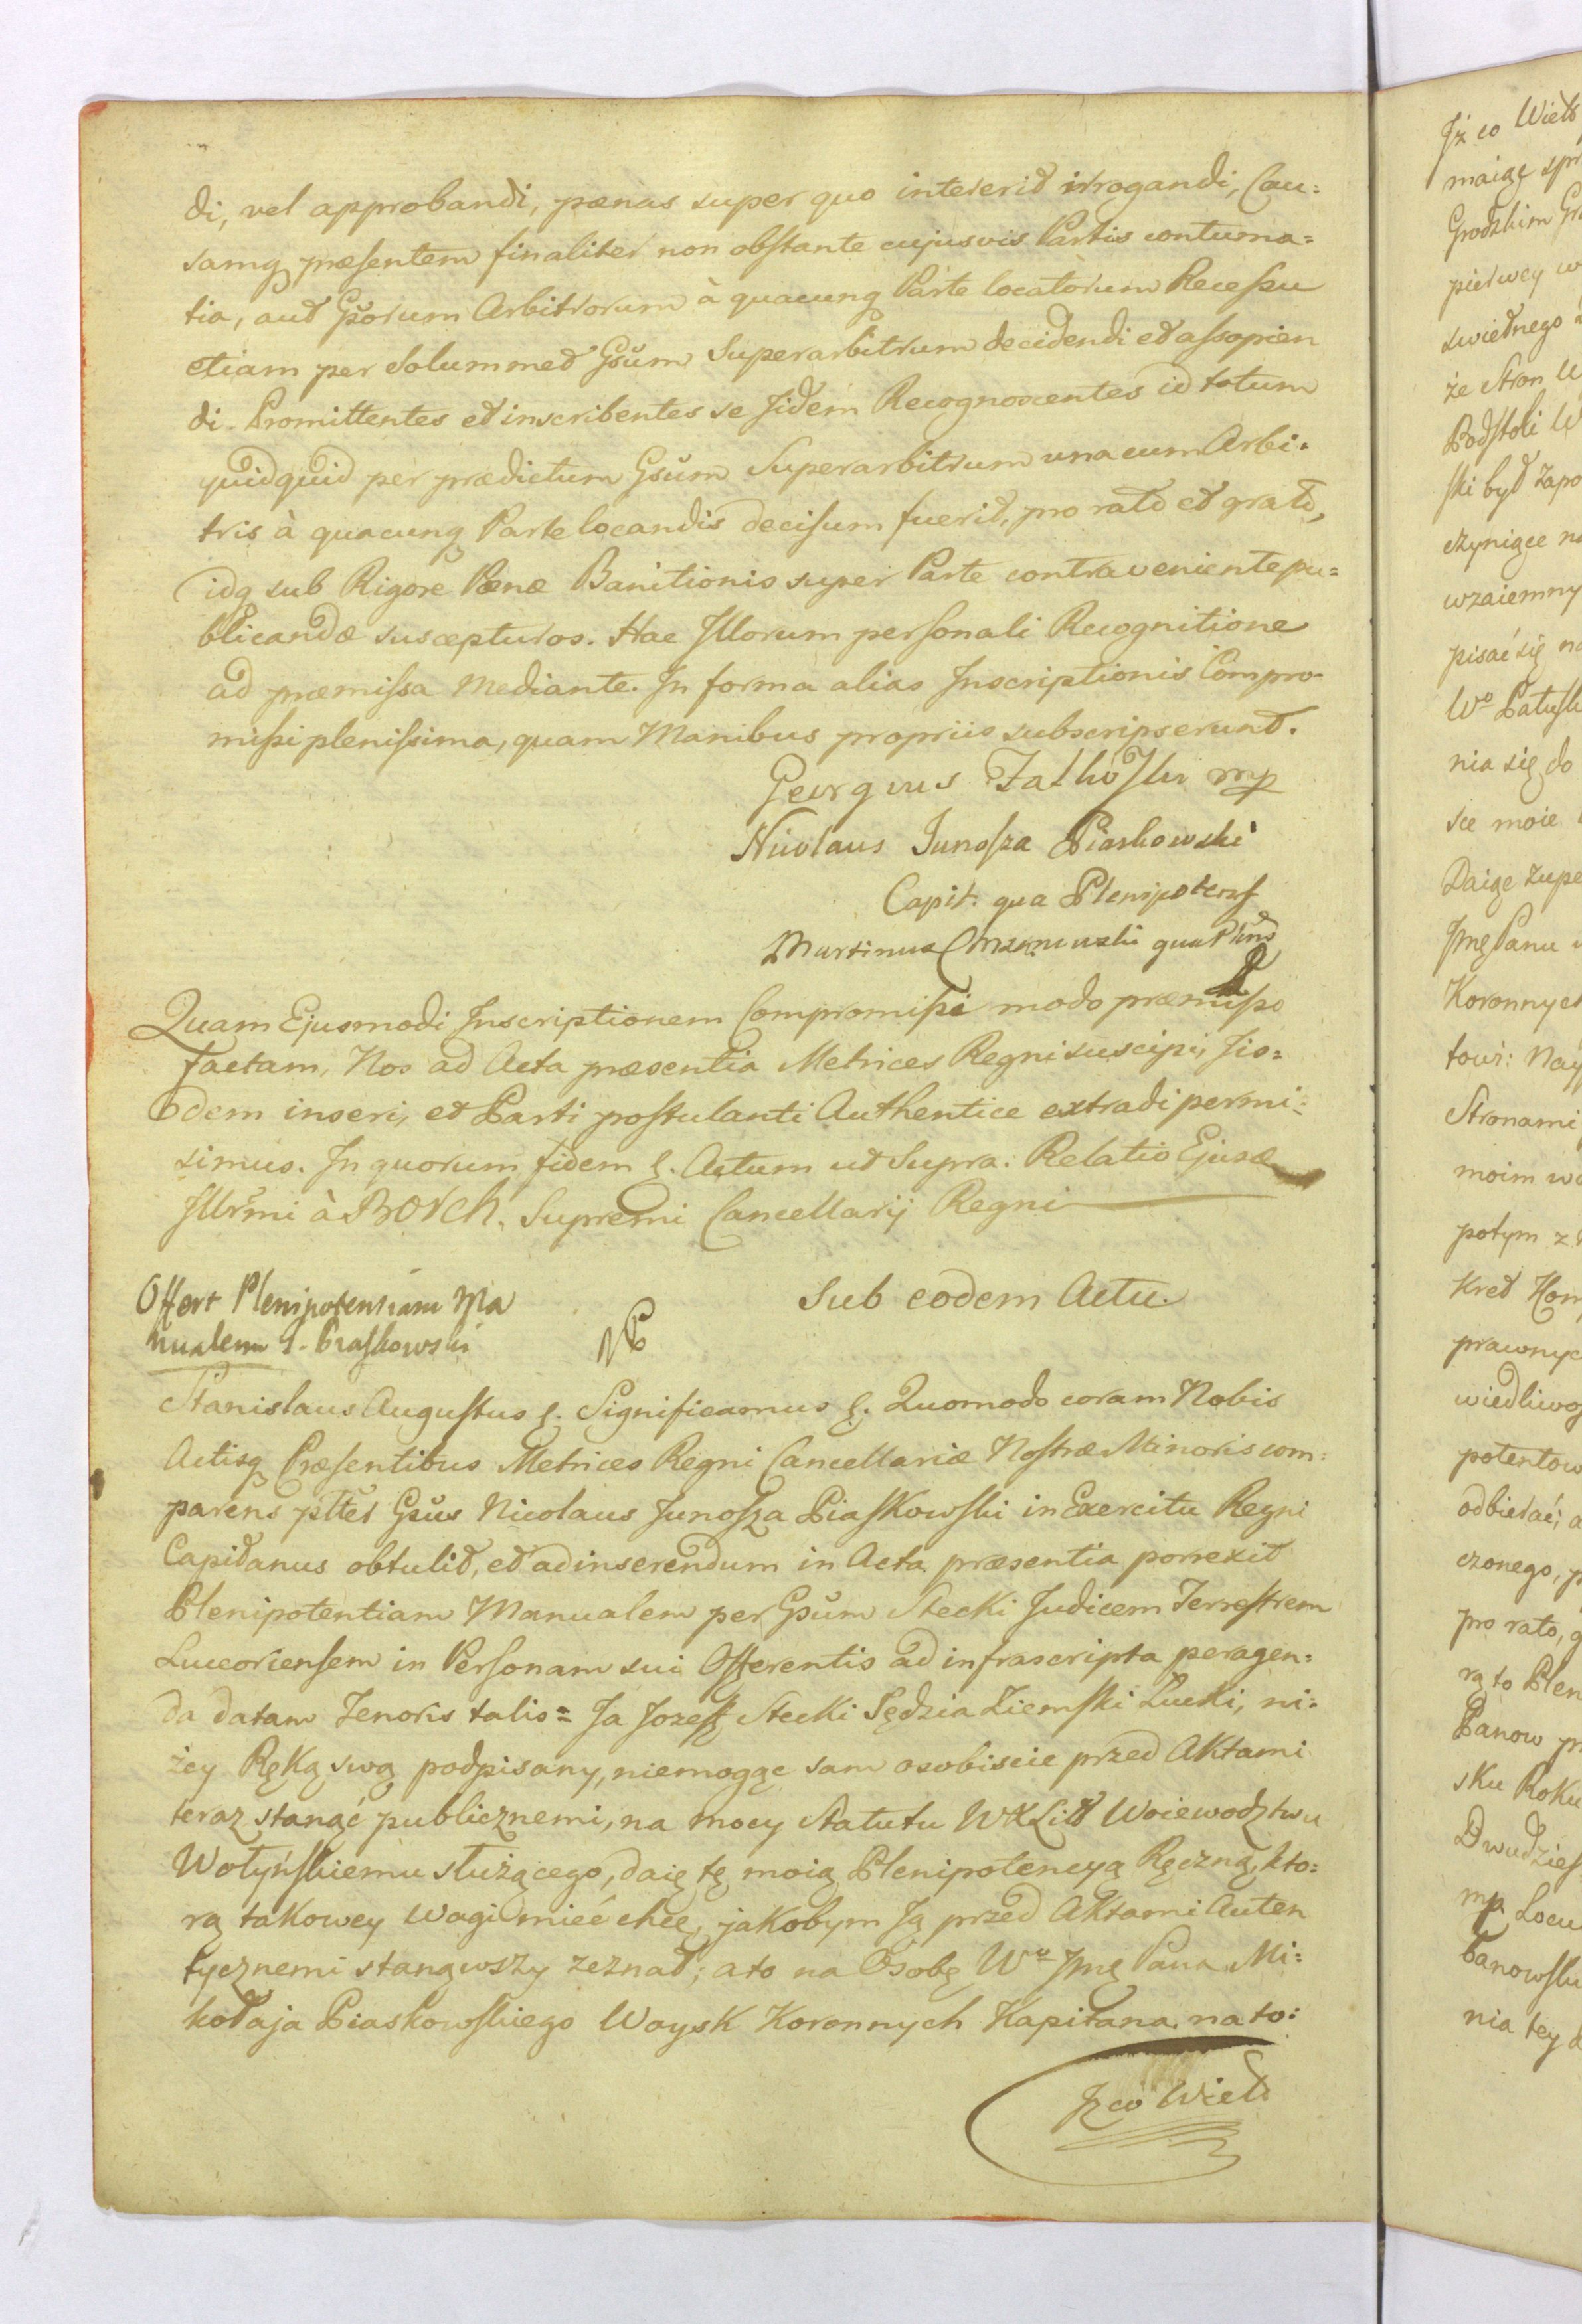 di, vel approbandi, pænas super quo intererit irrogandi, Cau=
samq₃ præsentem finaliter non obstante cujusvis Partis contuma=
tia, aut Gsorum Arbitrorum à quacunq₃ Parte locatorum Recessu
etiam per solummet Gsum Superarbitrum decidendi et assopien
di. Promittentes et inscribentes se jidem Recognoscentes id totum
quidquid per prædictum Gsum Superarbitrum una cum Arbi=
tris à quacunq₃ Parte locandis decisum fuerit, pro rato et grato,
idq₃ sub Rigore Pœnæ Banitionis super Parte contraveniente pu=
blicandæ suscepturos. Hac Illorum personali Recognitione
ad præmissa mediante. In forma alias Inscriptionis Compro-
missi plenissima, quam Manibus propriis subscripserunt.
Georgius mp
Nicolaus Junosza Piaskowski
Capit: qua Plenipotens
Martinus qua
Quam Ejusmodi Inscriptionem Compromissi modo præmisso
factam, Nos ad Acta præsentia Metrices Regni suscipi, Jis=
dem inseri, et Parti postulanti Authentice extradi permi=
simus. In quorum fidem &. Actum ut Supra. Relatio Ejusd
Illrmi à Borch. Supremi Cancellarij Regni
Offert Plenipotentiam Ma
nualem G. Piaskowski
Sub eodem Actu.
Stanislaus Augustus &. Significamus &. Quomodo coram Nobis
Actisq₃ Præsentibus Metrices Regni Cancellariæ Nostræ Minoris com=
parens plter Gsus Nicolaus Junosza Piaskowski in Exercitu Regni
Capitanus obtulit, et ad inserendum in Acta præsentia porrexit
Plenipotentiam Manualem per Gsum Stecki Judicem Terrestrem
Luceoriensem in Personam sui Offerentis ad infrascripta peragen=
da datam Tenoris talis= Ja Jozeff Stecki Sędzia Ziemski Lucki, ni=
żey Ręką swą podpisany, niemogąc sam osobiscie przed Aktami
teraz stanąć publicznemi, na mocy Statutu WXLitt Woiewodztwu
Wołyńskiemu służącego, daię tę moią Plenipotencyą Ręczną, kto=
rą takowey wagi mieć chcę, jakobym Ją przed Aktami Auten
tycznemi stanąwszy zeznał; a to na Osobę Wo Jmę Pana Mi=
kołaja Piaskowskiego Woysk Koronnych Kapitana. na to:
Jż co Wiel
Jż co Wiel
maiąc
Grodzkim
pierwey
że Stron
Podstoli
ski był
czyniące
wzaiemny
pisać się
Wo
nia się do
sce moie
Daiąc
Jmę Panu
Koronnych
towr:
Stronami
moim
potym z
prawnyc
wiedliwo
potentow
odbierać;
czonego,
pro rato,
rą to Plen
Panow
sku Roku
Dwudzies
mp.
nia tey